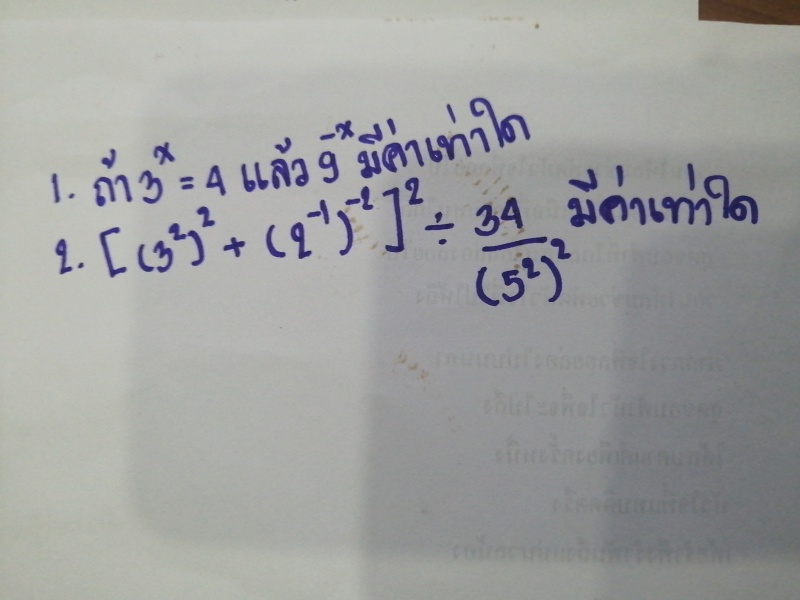 1. ถ้า 3^x = 4 แล้ว 9^-x มีค่าเท่าใด
2. [(3^2)^2 + (2^-1)^-2]^2 ÷ 34/(5^2)^2 มีค่าเท่าใด